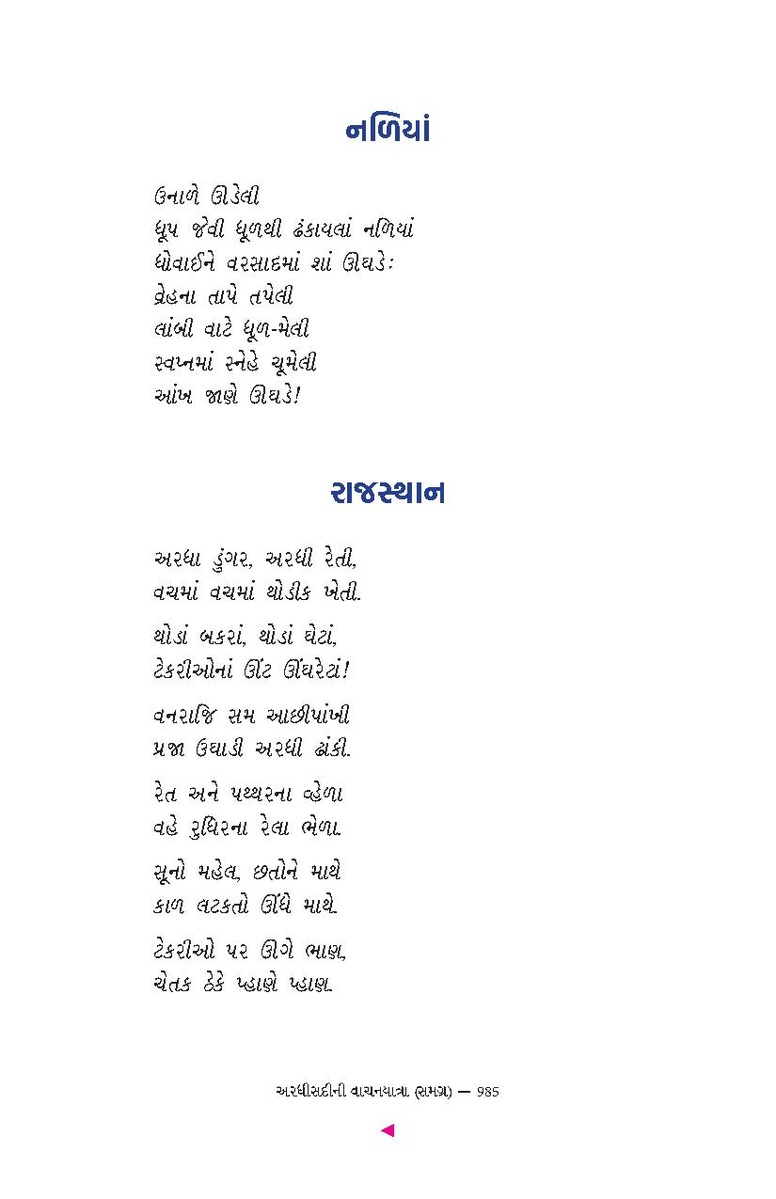 નળિયાં
ઉનાળે ઊડેલી
ધૂપ જેવી ધૂળથી ઢંકાયલાં નળિયાં
ધોવાઈને વરસાદમાં શાં ઊઘડે:
વ્રેહના તાપે તપેલી
લાંબી વાટે ધૂળ-મેલી
સ્વપ્નમાં સ્નેહે ચૂમેલી
આંખ જાણે ઊઘડે!
રાજસ્થાન
અરધા ડુંગર, અરધી રેતી,
વચમાં વચમાં થોડીક ખેતી.
થોડાં બકરાં, થોડાં ઘેટાં,
ટેકરીઓનાં ઊંટ ઊંઘરેટાં!
વનરાજિ સમ આછીપાંખી
પ્રજા ઉઘાડી અરધી ઢાંકી.
રેત અને પથ્થરના વ્હેળા
વહે રુધિરના રેલા ભેળા.
સૂનો મહેલ, છતોને માથે
કાળ લટકતો ઊંધે માથે.
ટેકરીઓ પર ઊગે ભાણ,
ચેતક ઠેકે પ્હાણે પ્હાણ.
અરધીસદીની વાચનયાત્રા (સમગ્ર) — 985